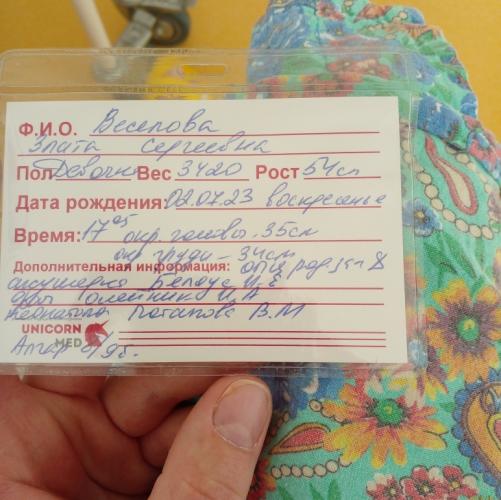 Ф.И.О. Веселова
Злата Сергеевна
Пол Девочка Вес 3420 Рост 54см
Дата рождения: 02.07.23 воскресенье
Время: 17 05 окр. головы - 35см
окр груди - 34см
Дополнительная информация:
акушерка Белоус И.Е
Олейник И.А
неонатолог Потапова В.М
UNICORN
MED
Апгар 8/9б.